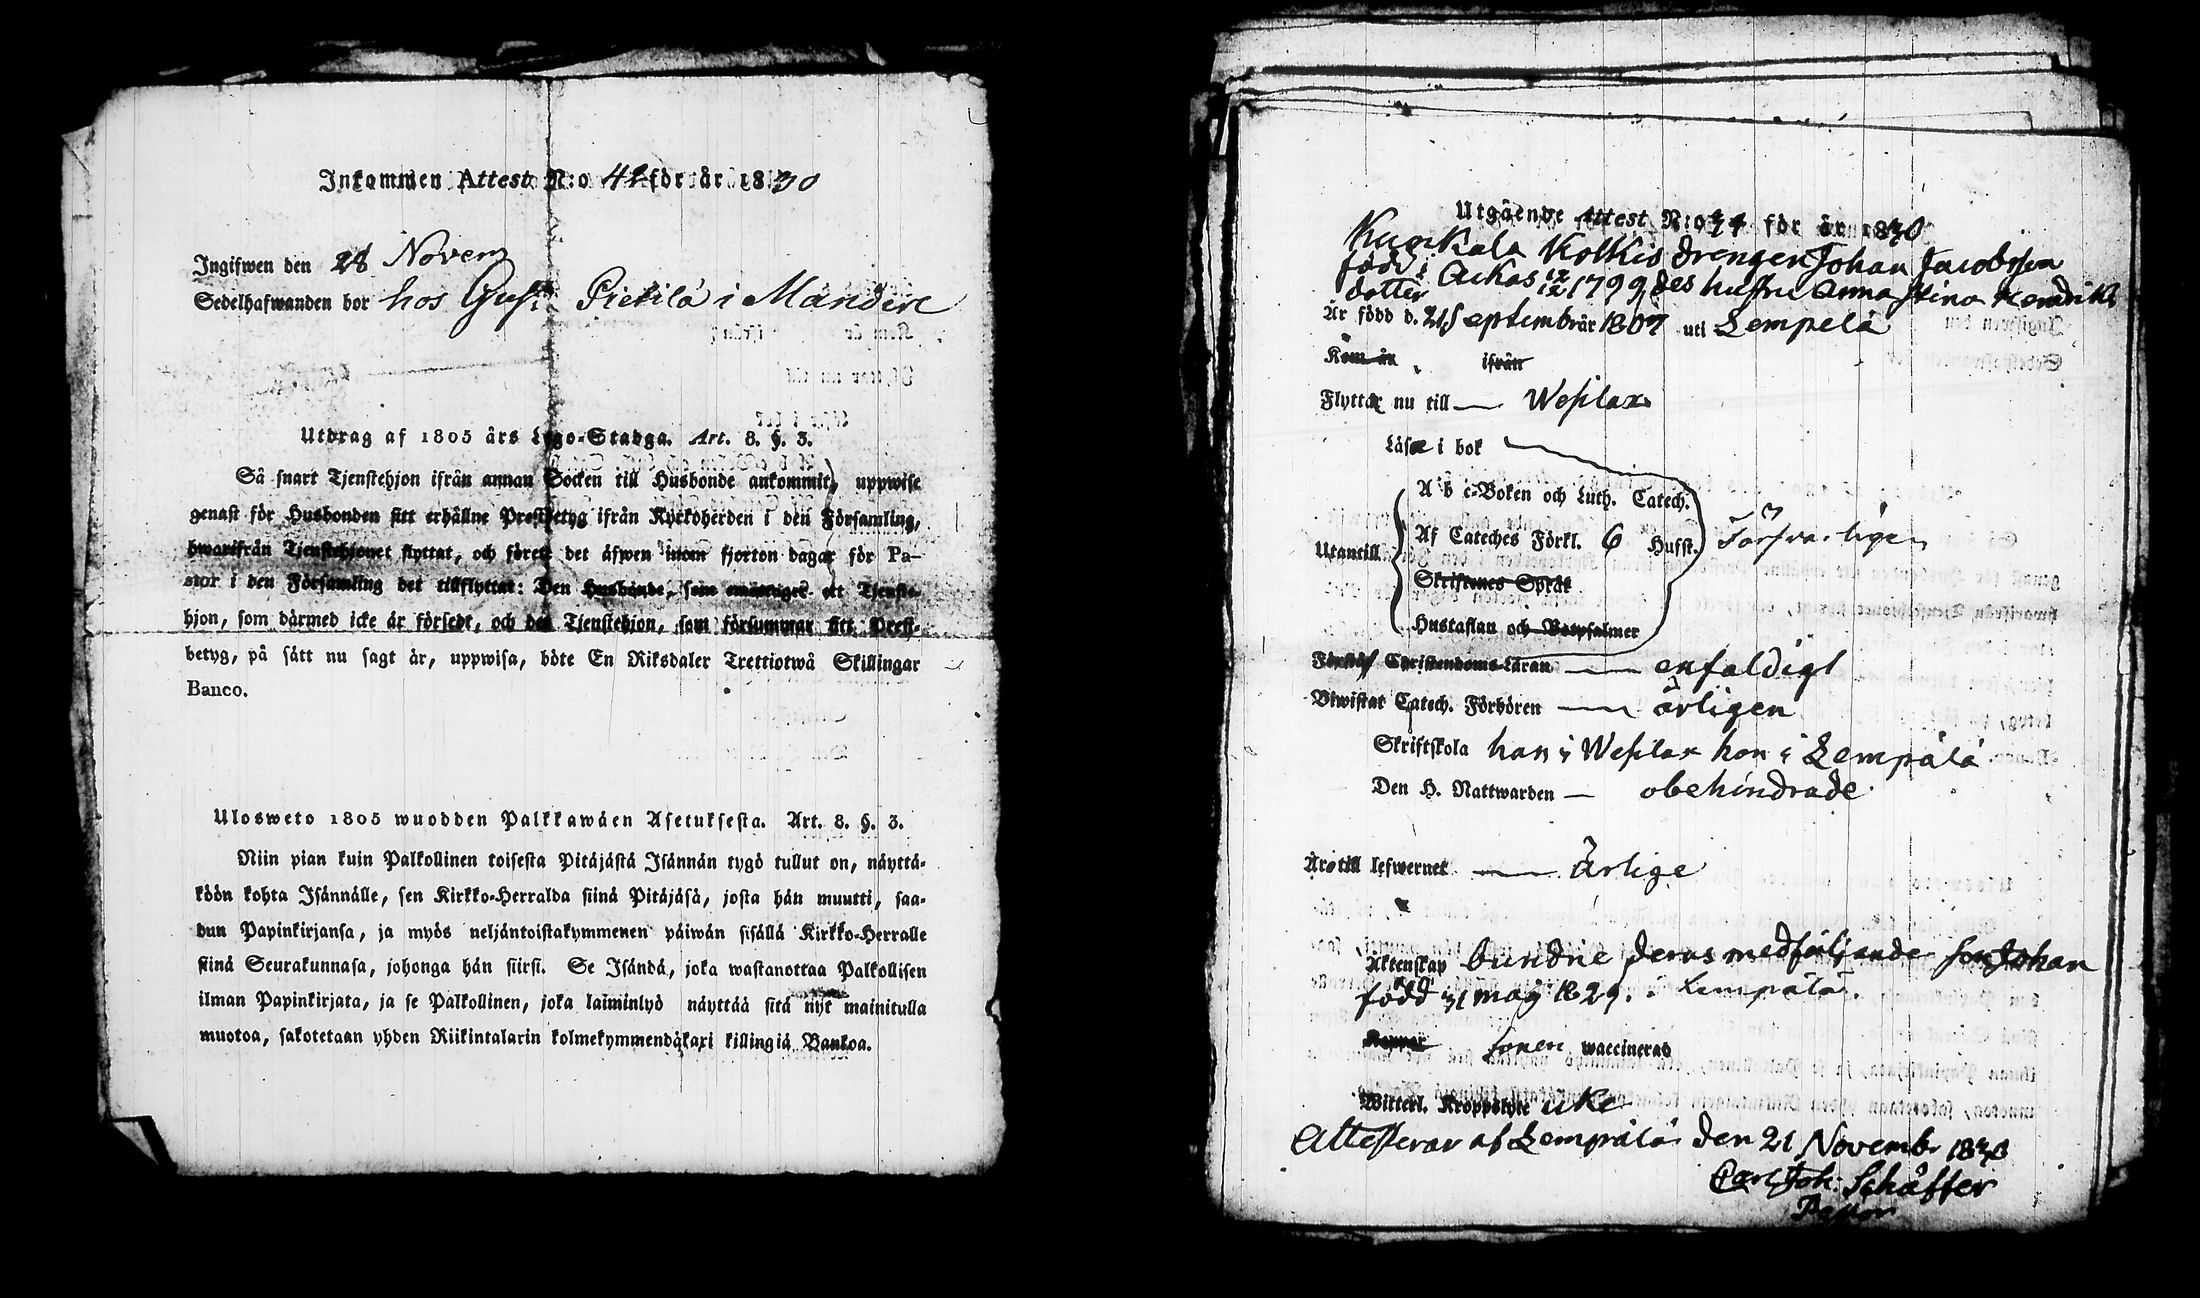 Inkommen Attest N:o 42 för år 1830
Ingifwen den 28 Novem
Sedelhafwanden bor hos Gust. Pietilä i Mandere
Utdrag af 1805 års Lego-Stadga. Art. 8. §. 3.
Så snart Tjenstehjon ifrån annan Socken till Husbonde ankommit, uppwise
genast för Husbonden sitt erhållne Prestbetyg ifrån Kyrkoherden i den Församling,
hwarifrån Tjenstehjonet flyttat, och förete det äfwen inom fjorton dagar för Pa-
stor i den Församling det tillflyttat: Den Husbonde, som emottager ett Tjenste-
hjon, som därmed icke är försedt, och det Tjenstehjon, som försummar sitt Prest-
betyg, på sätt nu sagt är, uppwisa, böte En Riksdaler Trettiotwå Skillingar
Banco.
Ulosweto 1805 wuodden Palkkawäen Asetuksesta. Art. 8. §. 3.
Niin pian kuin Palkollinen toisesta Pitäjästä Isännän tygö tullut on, näyttä-
köön kohta Isännälle, sen Kirkko-Herralda siinä Pitäjäsä, josta hän muutti, saa-
dun Papinkirjansa, ja myös neljäntoistakymmenen päiwän sisällä Kirkko-Herralle
siinä Seurakunnasa, johonga hän siirsi. Se Isändä, joka wastanottaa Palkollisen
ilman Papinkirjata, ja se Palkollinen, joka laiminlyö näyttää sitä nyt mainitulla
muotoa, sakotetaan yhden Riikintalarin kolmekymmendäkaxi killingiä Bankoa.
Utgående Attest N:o 71 för år 1830
Kuokala Kolkis drengen Johan Jacobsson
född i Ackas 12/12 1799, des hustru Anna Stina Hendriks
dotter
Är född d. 21 September år 1807 uti Lempelä
Kom år ifrån
Flyttar nu till Wesilax
Läsa i bok
A b c-Boken och Luth. Catech.
Utantill Af Cateches Förkl. 6 Husst. Försvarligen
Skriftenes Språk
Hustaflan och Botpsalmer
Förstår Christendoms-Läran enfaldigt
Biwistat Catech. Förhören årligen
Skriftskola han i Wesilax hon i Lempälä
Den H. Nattwarden obehindrade
Äro till lefwernet Ärlige
Äktenskap bundne deras medföljande son Johan
född 31 maij 1829. i Lempälä.
Koppor sonen waccinerad
Witterl. Kroppslyte icke
Attesterar af Lempälä den 21 Novembr 1830
Carl Joh: Schäffer
Pastor